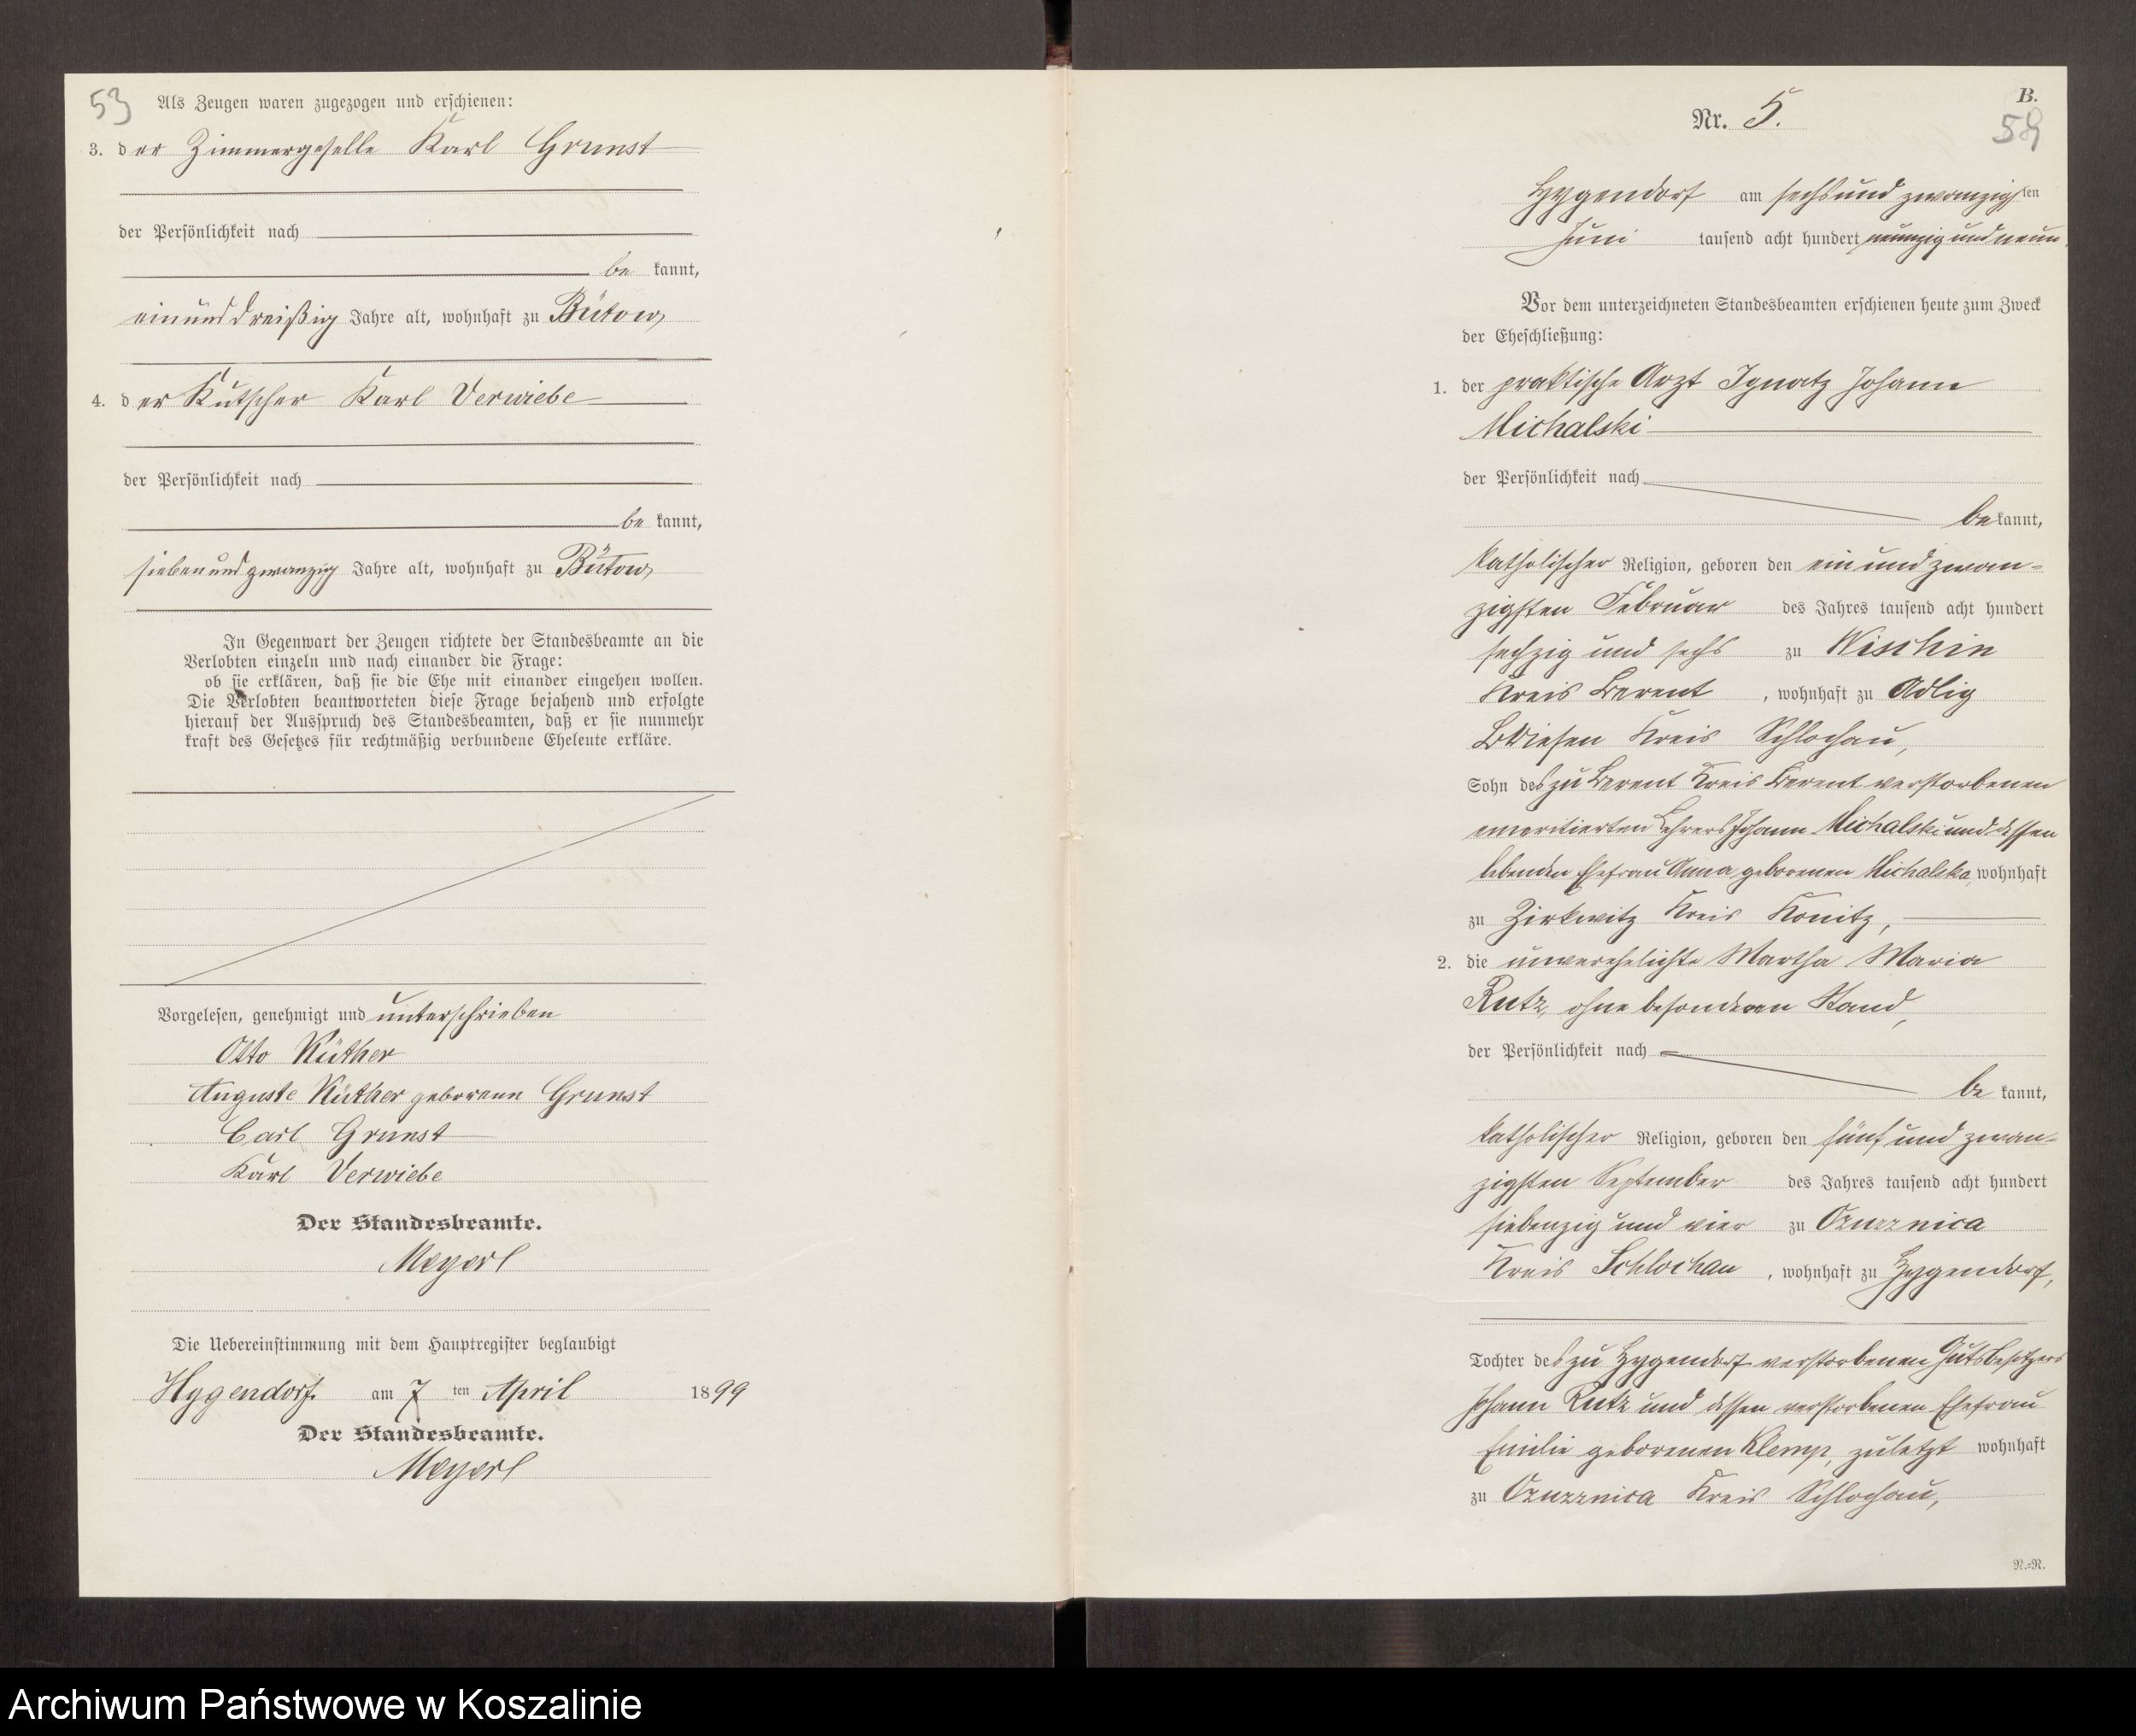 53 Als Zeugen waren zugezogen und erschienen:
3. der Zimmergeselle Karl Grunst
der Persönlichkeit nach
be kannt,
einunddreißig Jahre alt, wohnhaft zu Bütow,
4. der Kutscher Karl Verwiebe
der Persönlichkeit nach
be kannt,
siebenundzwanzig Jahre alt, wohnhaft zu Bütow,
In Gegenwart der Zeugen richtete der Standesbeamte an die
Verlobten einzeln und nach einander die Frage:
ob sie erklären, daß sie die Ehe mit einander eingehen wollen.
Die Verlobten beantworteten diese Frage bejahend und erfolgte
hierauf der Ausspruch des Standesbeamten, daß er sie nunmehr
kraft des Gesetzes für rechtmäßig verbundene Eheleute erkläre.
Vorgelesen, genehmigt und unterschrieben
OttoKüther
Auguste Küther geborene Grunst
Carl Grunst
Karl Verwiebe
Der Standesbeamte.
Meyerl
Die Uebereinstimmung mit dem Hauptregister beglaubigt
Hygendorf am 7 ten April 1899
Der Standesbeamte.
Meyerl
B.
Nr. 5.
Hygendorf am sechsundzwanzigsten
Juni tausend acht hundert neunzig und neun
Vor dem unterzeichneten Standesbeamten erschienen heute zum Zweck
der Eheschließung:
1. der praktische Arzt Ignatz Johann
Michalski
der Persönlichkeit nach
be kannt,
katholischer Religion, geboren den ein und zwan-
zigsten Februar des Jahres tausend acht hundert
sechzig und sechs zu Wischin
Kreis Berent, wohnhaft zu Adlig
Briesen Kreis Schlochau,
Sohn des zu Berent Kreis Berent verstorbenen
emeritierten Lehrers Johann Michalski und dessen
lebenden Ehefrau Anna geborenen Michalska, wohnhaft
zu Zirkwitz Kreis Konitz,
2. die unverehelichte Martha Maria
Rutz, ohne besonderen Stand,
der Persönlichkeit nach
be kannt,
katholischer Religion, geboren den fünf und zwan-
zigsten September des Jahres tausend acht hundert
siebenzig und vier zu Ozuzznica
Kreis Schlochau, wohnhaft zu Hygendorf,
Tochter des zu Hygendorf verstorbenen Gutsbesitzers
Johann Rutz und dessen verstorbenen Ehefrau
Emilie geborenen Klemp, zuletzt wohnhaft
zu Ozuzznica Kreis Schlochau,
N.=N.
Archiwum Państwowe w Koszalinie